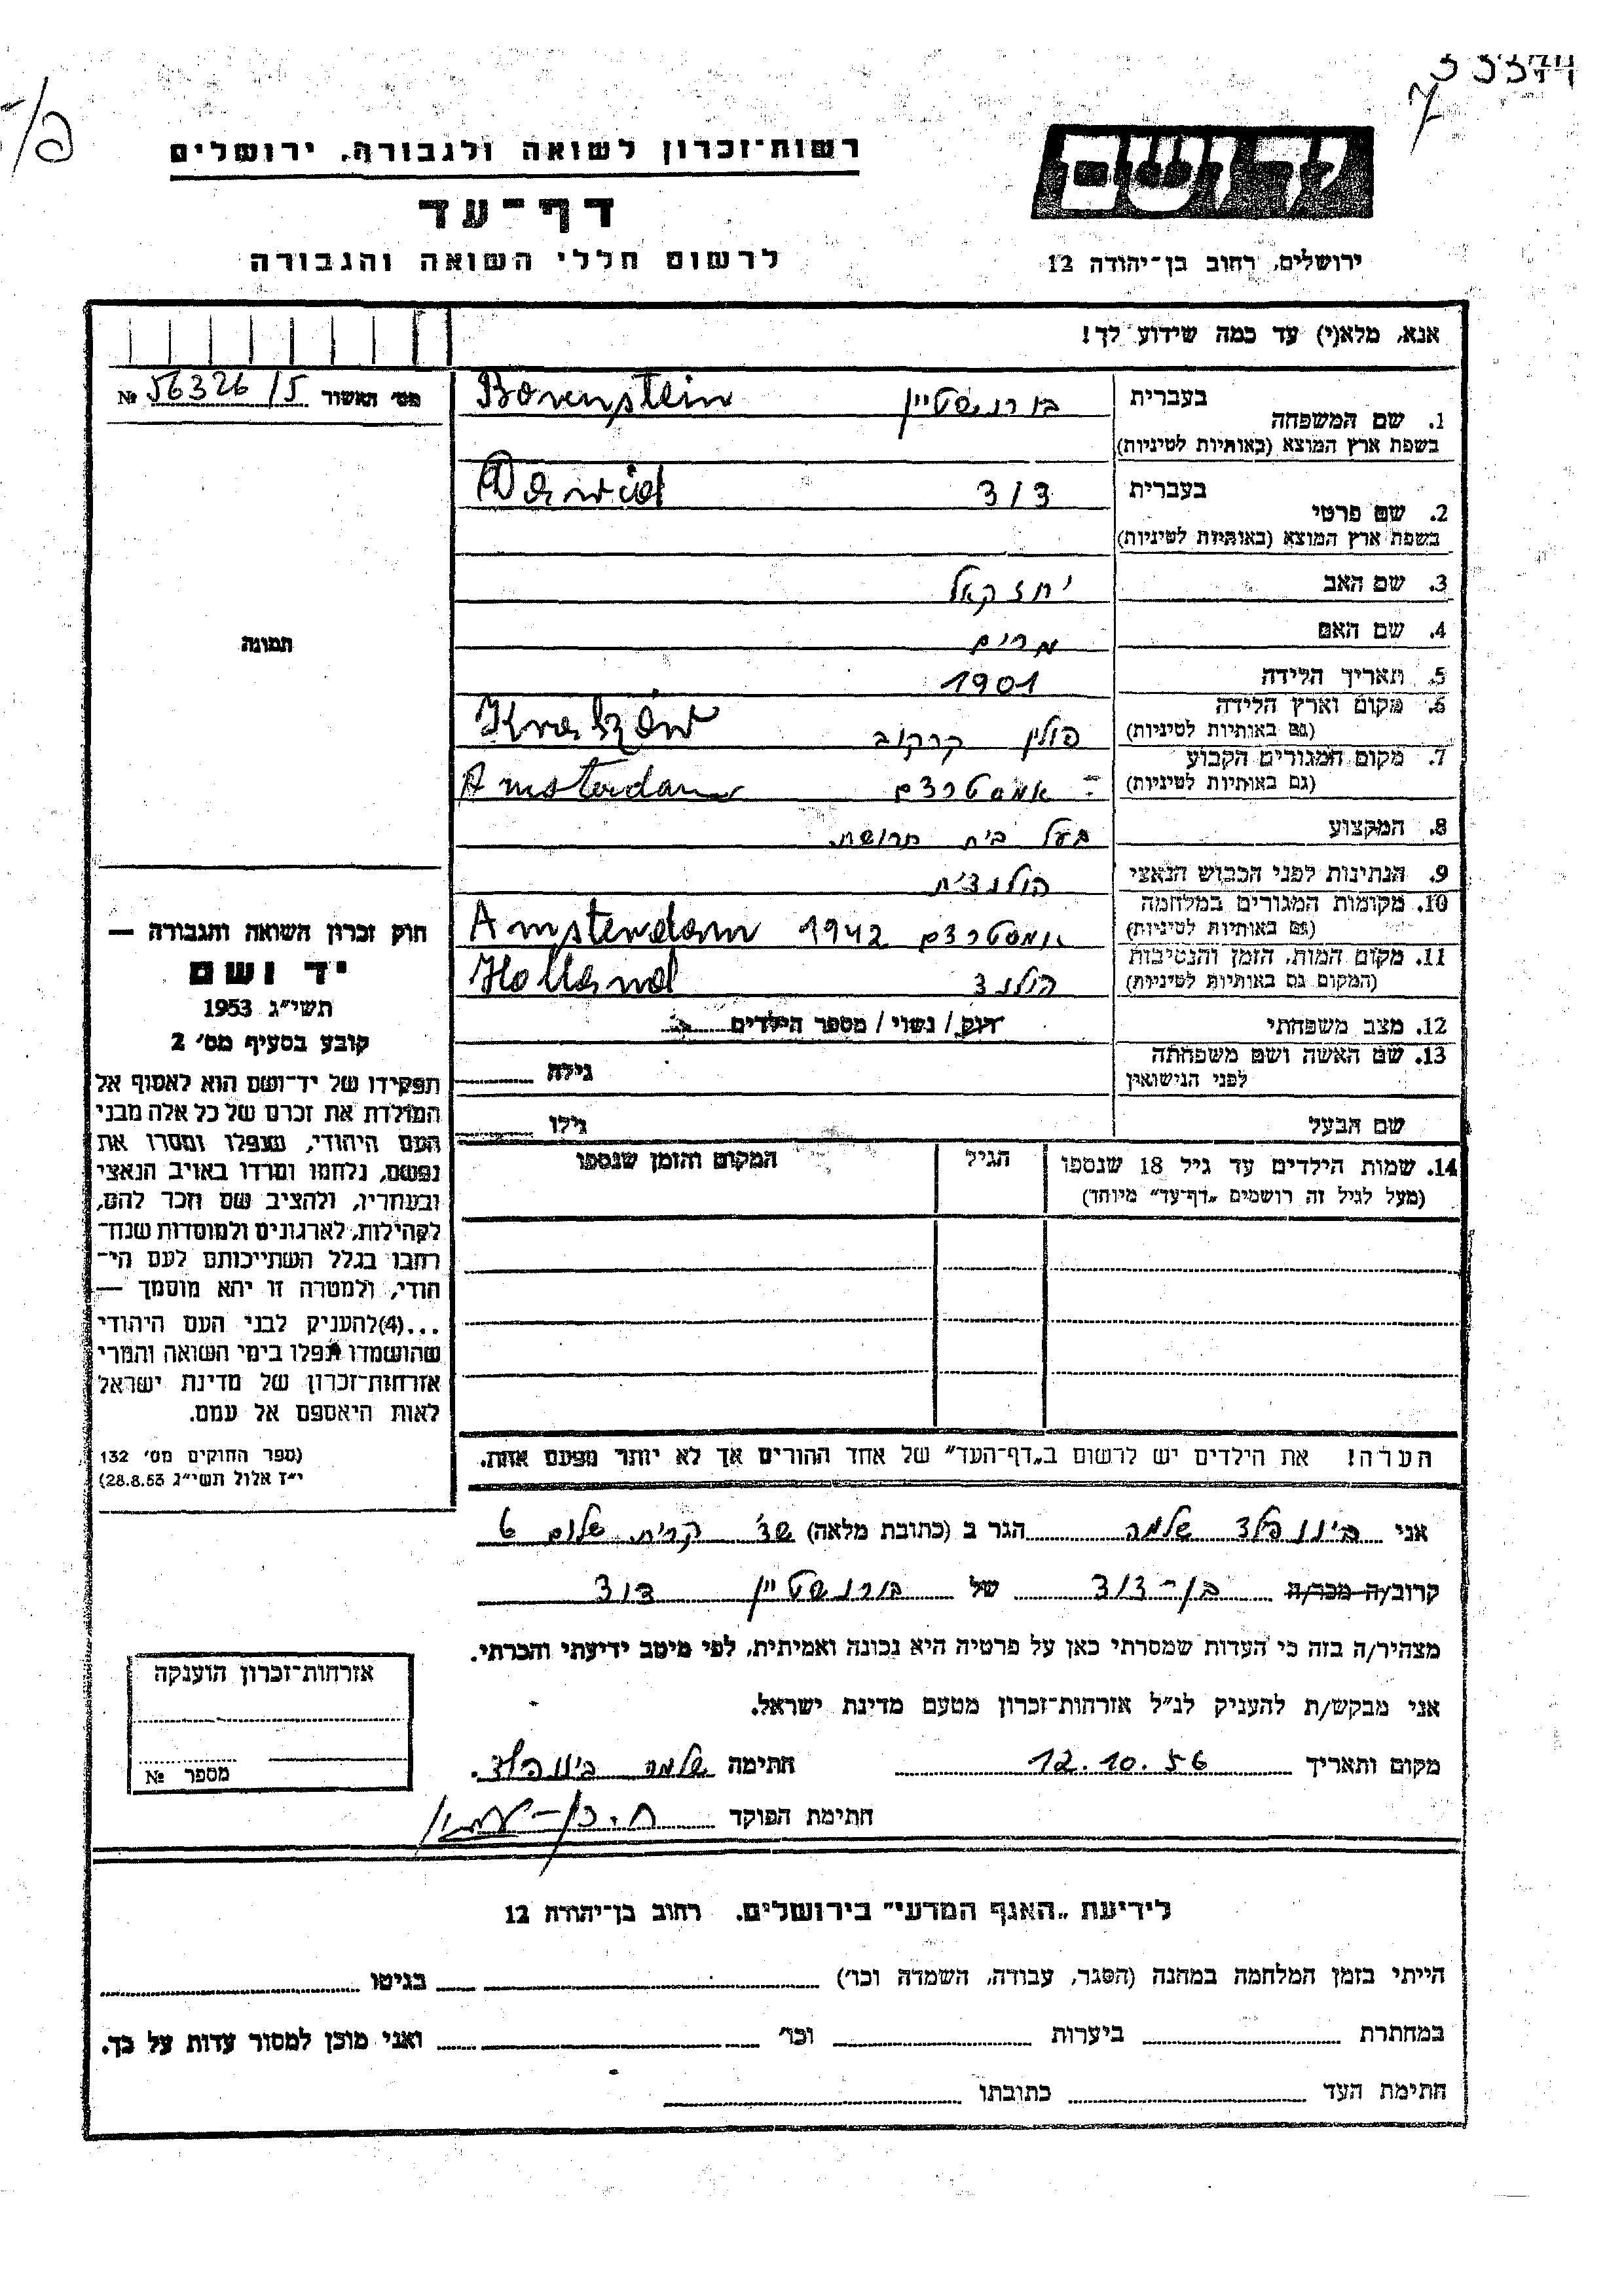 33374
רשות־זכרון לשואה ולגבורה, ירושלים
דף־עד
לרשום חללי השואה והגבורה
יד ושם
ירושלים, רחוב בן־יהודה 12
אנא, מלא(י) עד כמה שידוע לך!
מס׳ האשור № 56326/5
תמונה
1. שם המשפחה בעברית בורנשטיין Borenstein
בשפת ארץ המוצא (באותיות לטיניות)
2. שם פרטי בעברית דוד Dawid
בשפת ארץ המוצא (באותיות לטיניות)
3. שם האב יחזקאל
4. שם האם מרים
5. תאריך הלידה 1901
6. מקום וארץ הלידה פולין קרקוב Kraków
(גם באותיות לטיניות)
7. מקום המגורים הקבוע אמסטרדם Amsterdam
(גם באותיות לטיניות)
8. המקצוע בעל בית חרושת
9. הנתינות לפני הכבוש הנאצי הולנדית
10. מקומות המגורים במלחמה אמסטרדם 1942 Amsterdam
(גם באותיות לטיניות)
11. מקום המות, הזמן והנסיבות הולנד Holland
(המקום גם באותיות לטיניות)
12. מצב משפחתי רווק / נשוי / מספר הילדים
13. שם האשה ושם משפחתה גילה
לפני הנישואין
שם הבעל גילו
14. שמות הילדים עד גיל 18 שנספו הגיל המקום והזמן שנספו
(מעל לגיל זה רושמים „דף־עד״ מיוחד)
הערה! את הילדים יש לרשום ב„דף־העד״ של אחד ההורים אך לא יותר מפעם אחת.
חוק זכרון השואה והגבורה —
יד ושם
תשי״ג 1953
קובע בסעיף מס׳ 2
תפקידו של יד־ושם הוא לאסוף אל
המולדת את זכרם של כל אלה מבני
העם היהודי, שנפלו ומסרו את
נפשם, נלחמו ומרדו באויב הנאצי
ובעוזריו, ולהציב שם וזכר להם,
לקהילות, לארגונים ולמוסדות שנח־
רבו בגלל השתייכותם לעם הי־
הודי, ולמטרה זו יהא מוסמך —
...(4)להעניק לבני העם היהודי
שהושמדו ונפלו בימי השואה והמרי
אזרחות־זכרון של מדינת ישראל
לאות היאספם אל עמם.
(ספר החוקים מס׳ 132
י״ז אלול תשי״ג 28.8.53)
אני בינונפלד שלמה הגר ב (כתובת מלאה) שכ׳ קרית שלום 6
קרוב/ה מכר/ה בן־דוד של בורנשטיין דוד
מצהיר/ה בזה כי העדות שמסרתי כאן על פרטיה היא נכונה ואמיתית, לפי מיטב ידיעתי והכרתי.
אני מבקש/ת להעניק לנ״ל אזרחות־זכרון מטעם מדינת ישראל.
מקום ותאריך 12.10.56 חתימה שלמה
חתימת הפוקד
אזרחות־זכרון הוענקה
מספר №
לידיעת „האגף המדעי״ בירושלים, רחוב בן־יהודה 12
הייתי בזמן המלחמה במחנה (הסגר, עבודה, השמדה וכו׳) בגיטו
במחתרת ביערות וכו׳ ואני מוכן למסור עדות על כך.
חתימת העד כתובתו